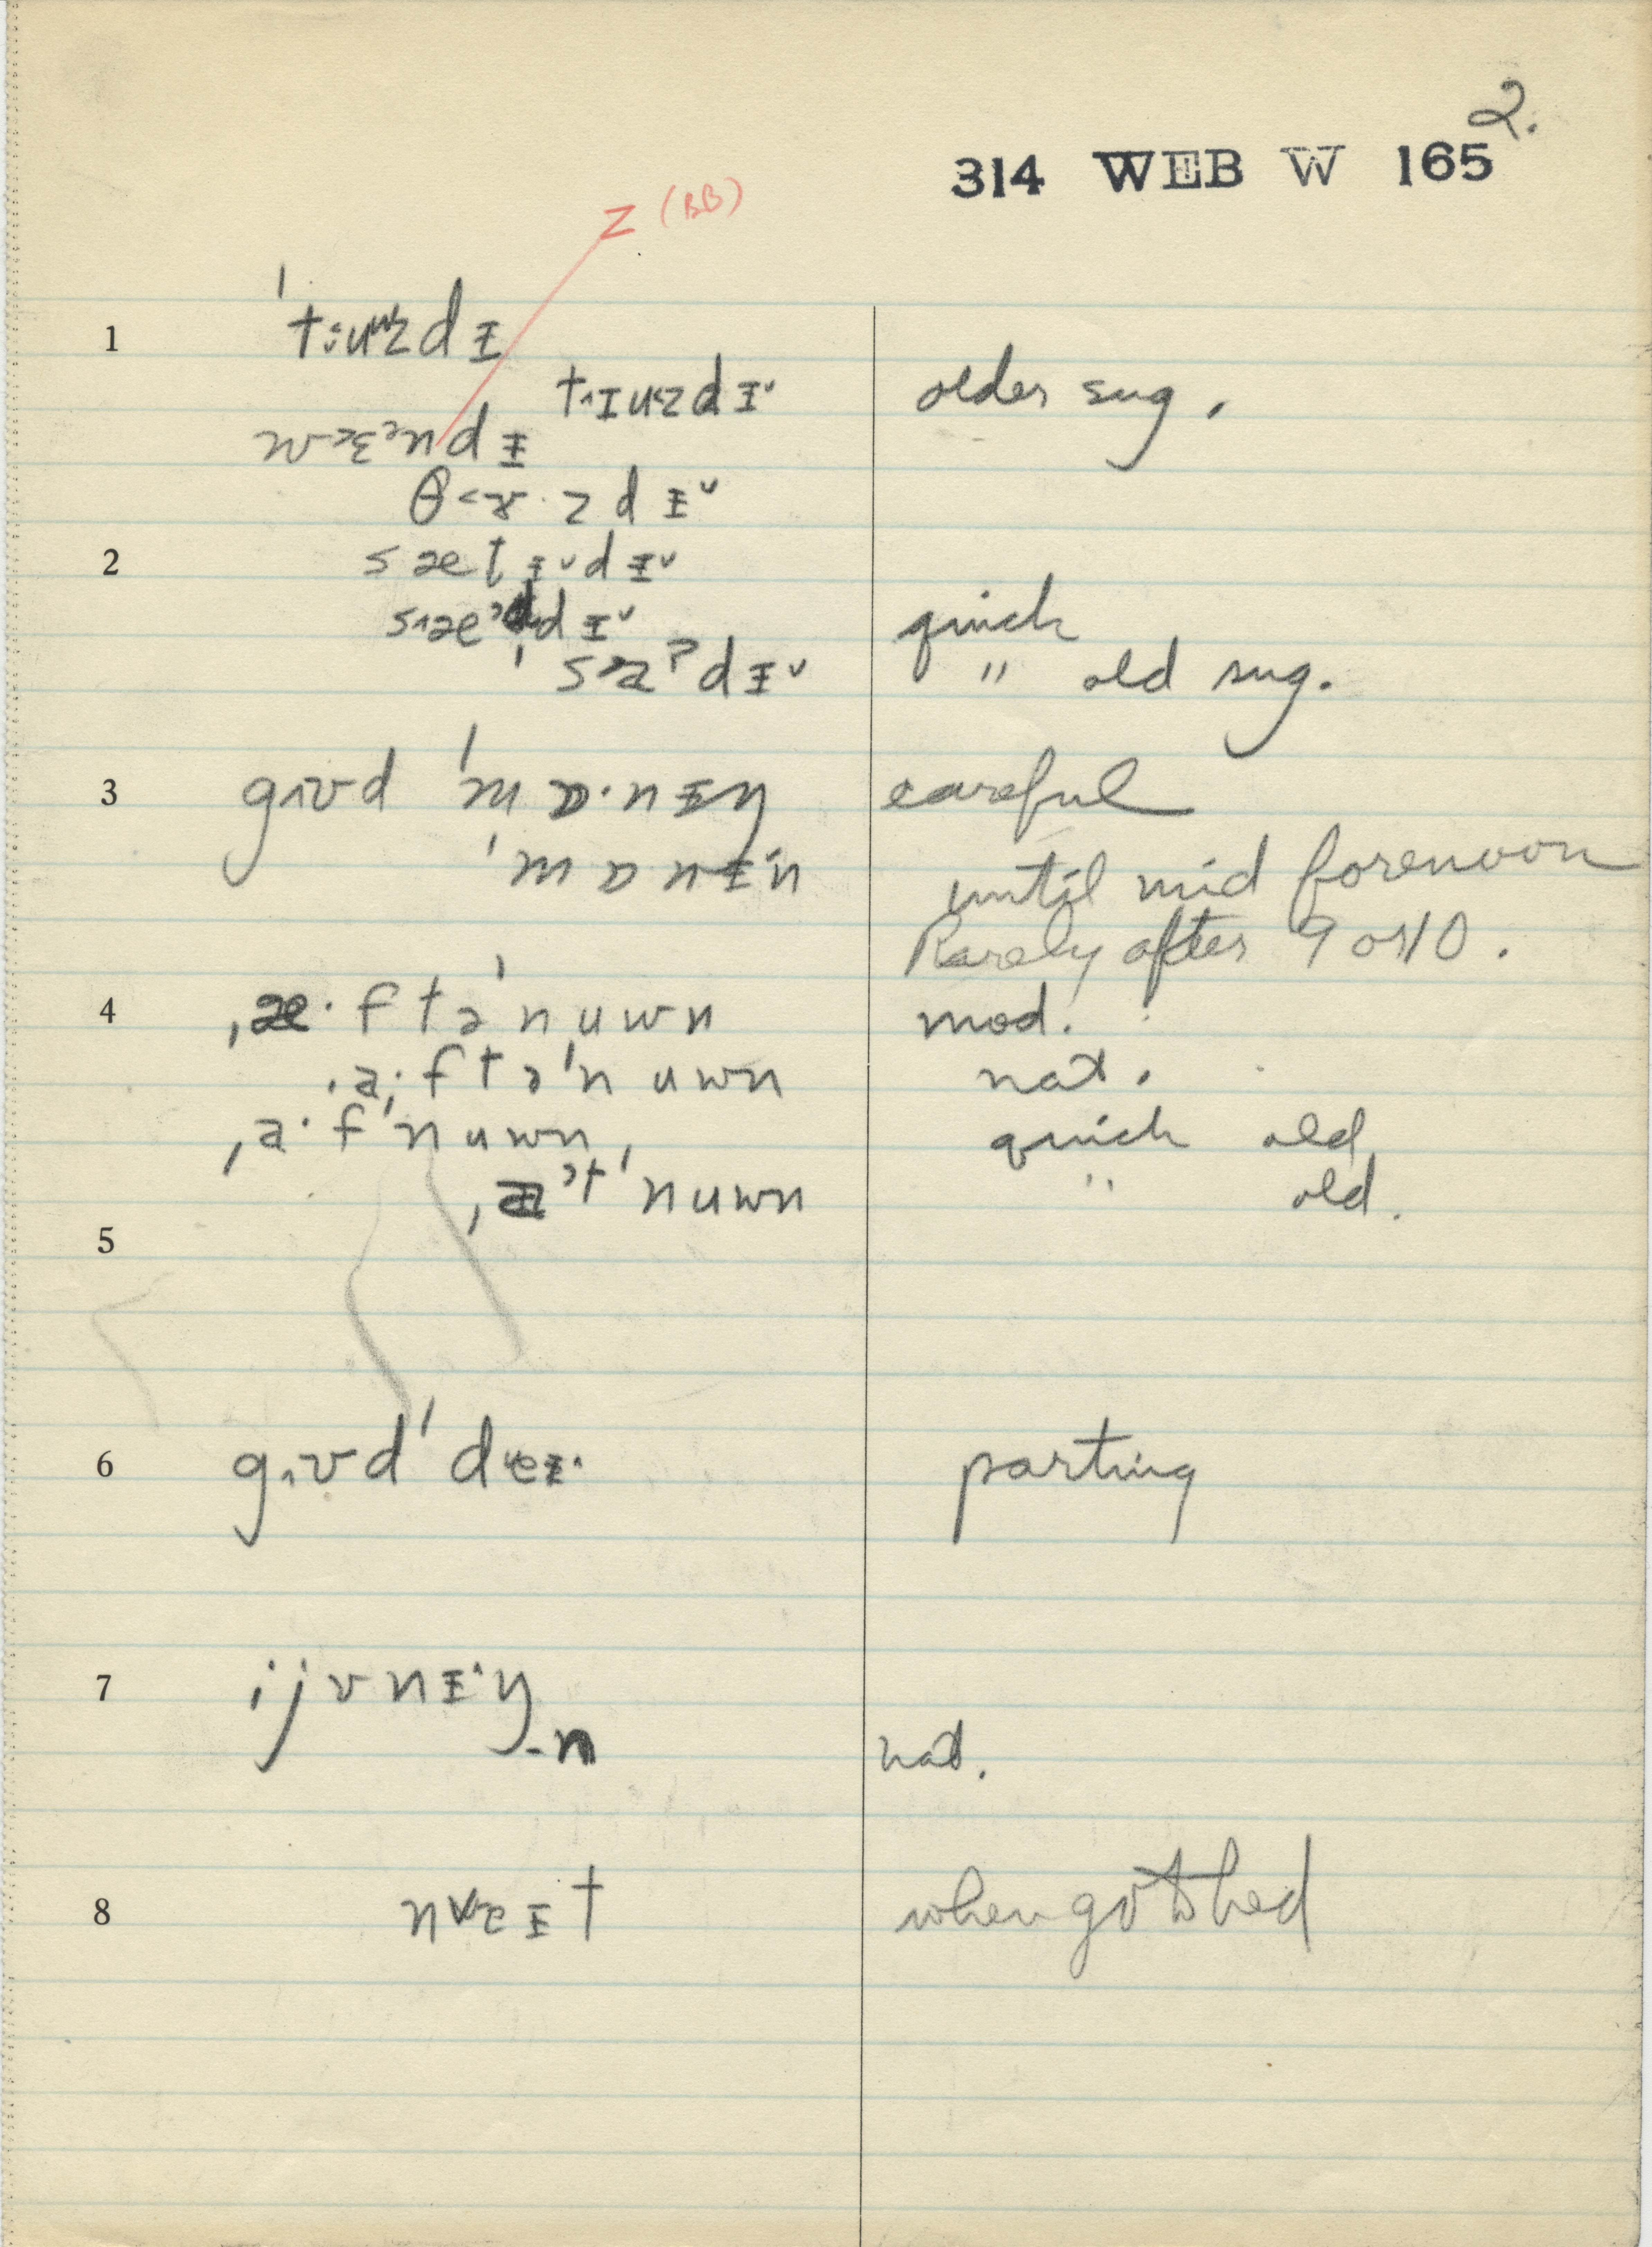 2.
314 WEB W 165
Z (BB)
1 't:uʷzdɪ
t˄ɪuzdɪ˅ older sug.
θ<ɜ·zdɪ˅
2 sætɪ˅dɪ˅
quick
sa?dɪ˅ " old sug.
3 g˄ʊd 'mɒ·nɪŋ careful
'mɒnɪ˄n until mid forenoon
Rarely after 9 or 10.
4 ˌæ·ftə'nuwn mod.
ˌa·ftə'nuwn nat.
ˌa·f'nuwn, quick old
'nuwn " old.
5
6 g˄ʊd 'deɪ˄ parting
7 ijvnɪ˄ŋ
-n nat.
8 when go to bed